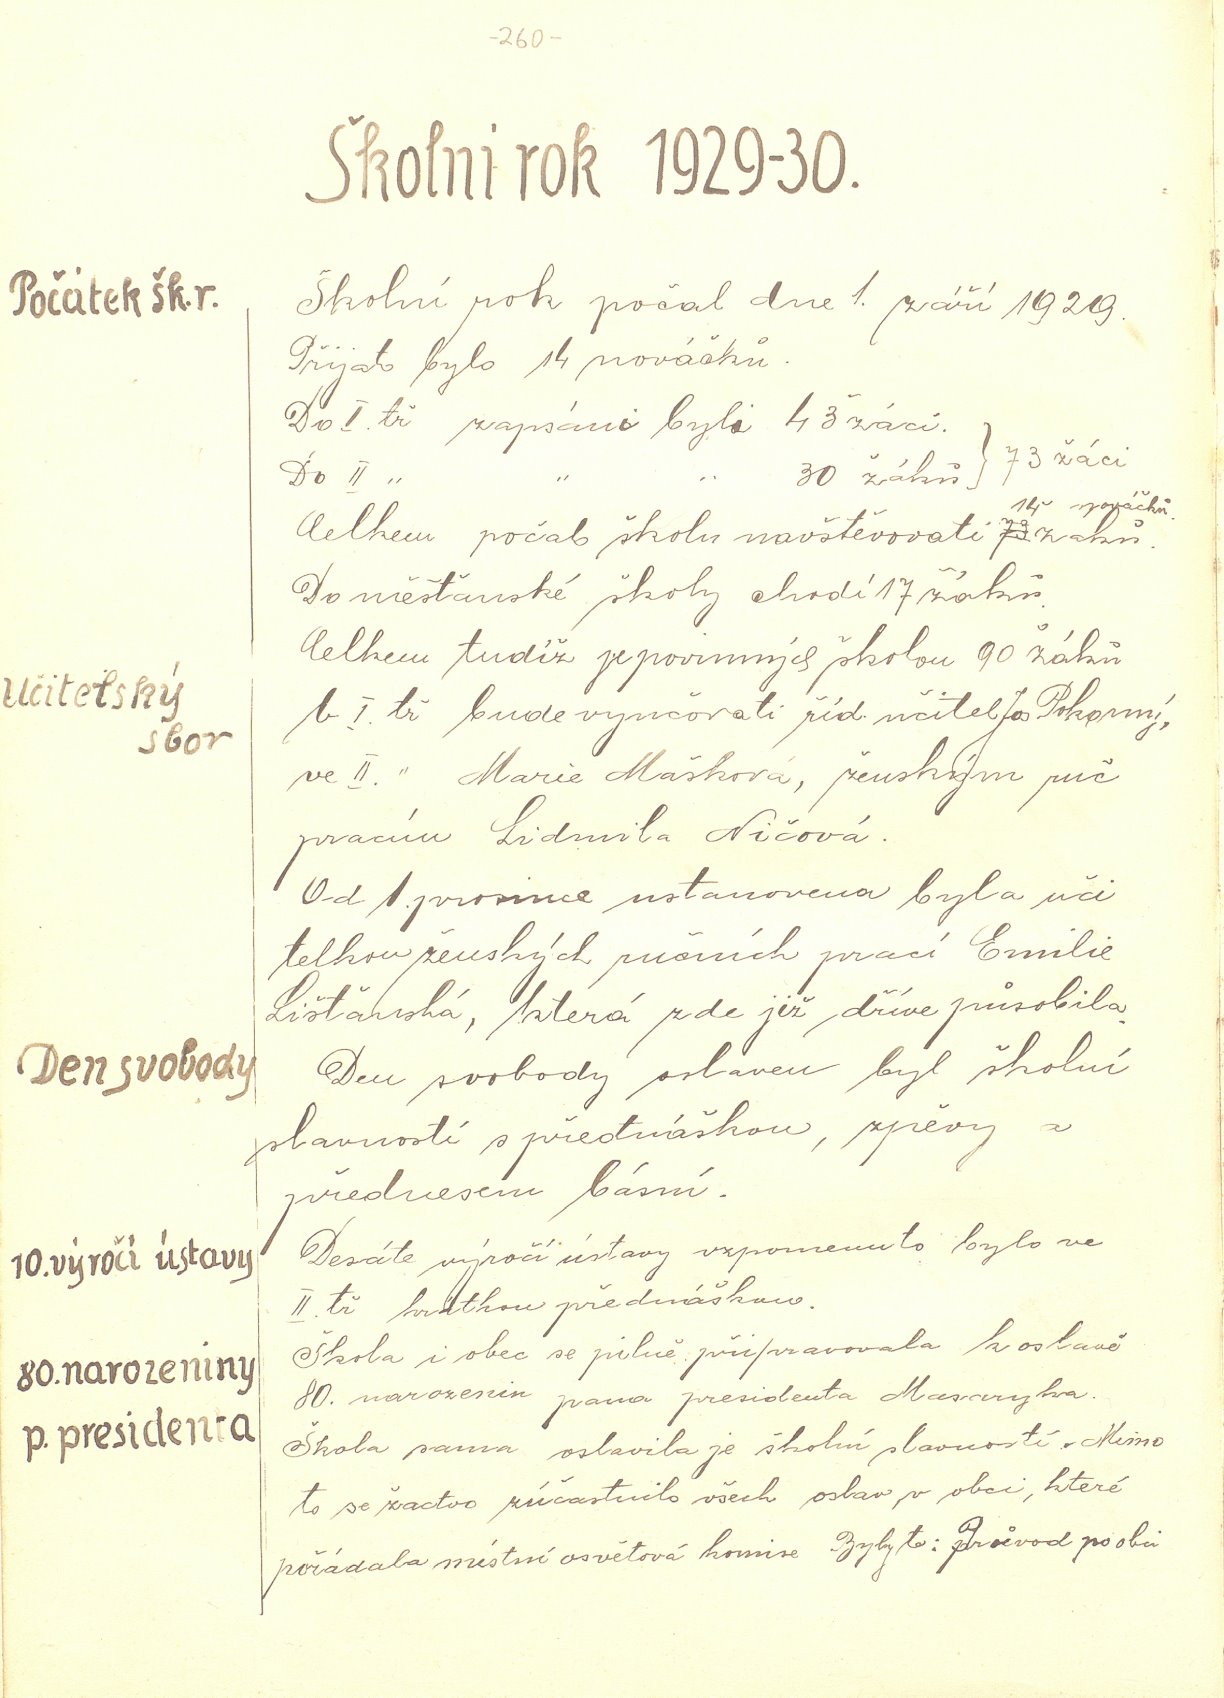 -260-
Školní rok 1929-30.
Počátek šk.r.
Školní rok počal dne 1. září 1929.
Přijato bylo 14 nováčků.
Do I. tř zapsáni byli 43 žáci.
Do II " " " 30 žáků } 73 žáci
14 nováčků.
Celkem počalo školu navštěvovati 73 žáků.
Do měšťanské školy chodí 17 žáků.
Celkem tudíž je povinných školou 90 žáků
Učitelský
sbor
V I. tř bude vyučovati říd. učitel Jos Pokorný,
ve II. " Marie Mašková, ženským ruč
pracím Lidmila Ničová.
Od 1. prosince ustanovena byla uči
telkou ženských ručních prací Emilie
Lišťanská, která zde již dříve působila.
Den svobody
Den svobody oslaven byl školní
slavností s přednáškou, zpěvy a
přednesem básní.
10. výročí ústavy
Desáté výročí ústavy vzpomenuto bylo ve
II. tř krátkou přednáškou.
80. narozeniny
p. presidenta
Škola i obec se pilně připravovala k oslavě
80. narozenin pana presidenta Masaryka.
Škola sama oslavila je školní slavností. Mimo
to se žactvo zúčastnilo všech oslav v obci, které
pořádala místní osvětová komise Byly to: Průvod po obci